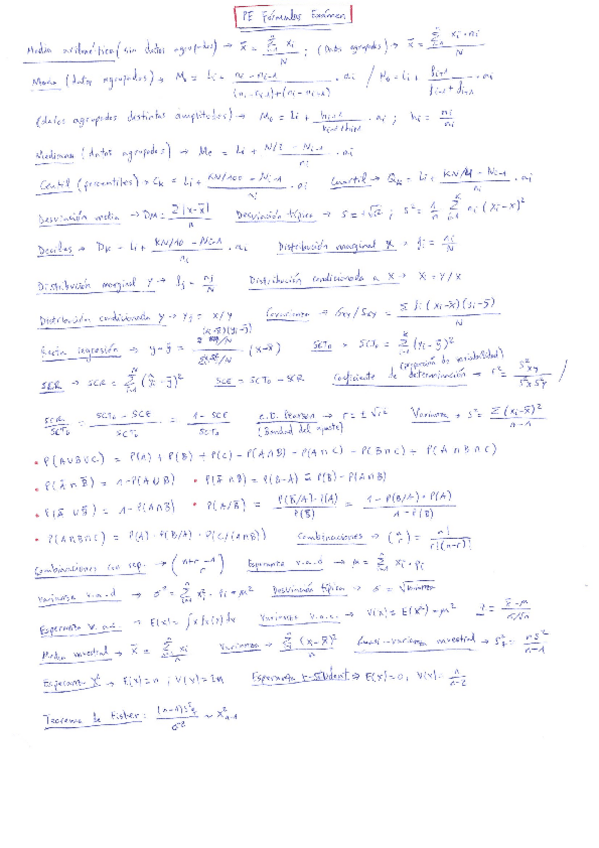 PE Fórmulas Exámen
Media aritmética (sin datos agrupados) → x̄ = Σ xi / N ; (datos agrupados) → x̄ = Σ xi · ni / N
Moda (datos agrupados) → Mo = Li + ni - ni-1 / (ni - ni-1) + (ni - ni+1) · ai /
(datos agrupados distintas amplitudes) → Mo = Li + · ai ; hi = ni
Mediana (datos agrupados) → Me = Li + N/2 - Ni-1 / ni · ai
Centil (percentiles) → Ck = Li + KN/100 - Ni-1 / ni · ai Cuartil → Qk = Li + KN/4 - Ni-1 / ni · ai
Desviación media → DM = Σ|x-x̄| / n Desviación típica → S = √S² ; S² = 1/n Σ ni (xi-x̄)²
Deciles → Dk = Li + KN/10 - Ni-1 / ni · ai Distribución marginal x → fi = ni/N
Distribución marginal y → fj = nj/N Distribución condicionada a x → xi = y/x
Distribución condicionada y → yj = x/y Covarianza → Sxy = Σ fi (xi-x̄)(yi-ȳ) / N
Recta regresión → y-ȳ = (x-x̄) SCTo → SCTo = Σ (yi-ȳ)²
SCR → SCR = Σ (ŷi-ȳ)² SCE = SCTo - SCR Coeficiente de determinación (proporción de variabilidad) → r² = S²xy / S²x S²y /
SCR/SCTo = SCTo - SCE / SCTo = 1 - SCE / SCTo Pearson → r = ± √r² (Bondad del ajuste) Varianza → S² = Σ(xi-x̄)² / n-1
• P(A∪B∪C) = P(A) + P(B) + P(C) - P(A∩B) - P(A∩C) - P(B∩C) + P(A∩B∩C)
• P(Ā∩B̄) = 1-P(A∪B) • P(Ā∩B) = P(B-A) = P(B)-P(A∩B)
• P(Ā∪B̄) = 1-P(A∩B) • P(A/B̄) = P(B̄/A)·P(A) / P(B̄) = 1-P(B/A)·P(A) / 1-P(B)
• P(A∩B∩C) = P(A) · P(B/A) · P(C/(A∩B)) Combinaciones → (n r) = n! / r!(n-r)!
Combinaciones con rep. → (n+r-1 r) Esperanza v.a.d → μ = Σ xi · pi
Varianza v.a.d → σ² = Σ xi² · pi - μ² Desviación típica → σ = √varianza
Esperanza v.a.c. → E(x) = ∫x f(x) dx Varianza v.a.c. → V(x) = E(x²) - μ²
Media muestral → x̄ = Σ xi / n Varianza → Σ (xi-x̄)² / n Cuasi-varianza muestral → nS² / n-1
Esperanza X² → E(x) = n ; V(x) = 2n Esperanza t-student → E(x) = 0, V(x) = n / n-2
Teorema de Fisher: ~ X²n-1